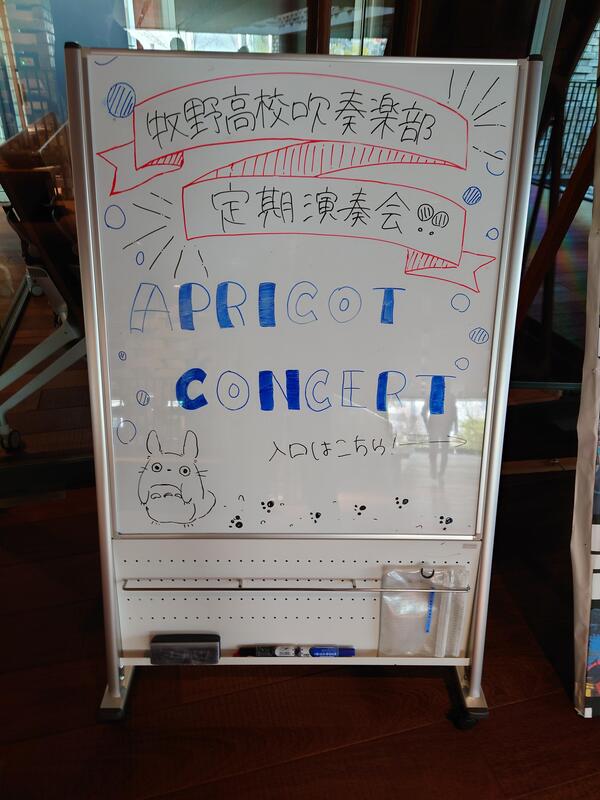 牧野高校吹奏楽部
定期演奏会
APRICOT
CONCERT
入口はこちら!